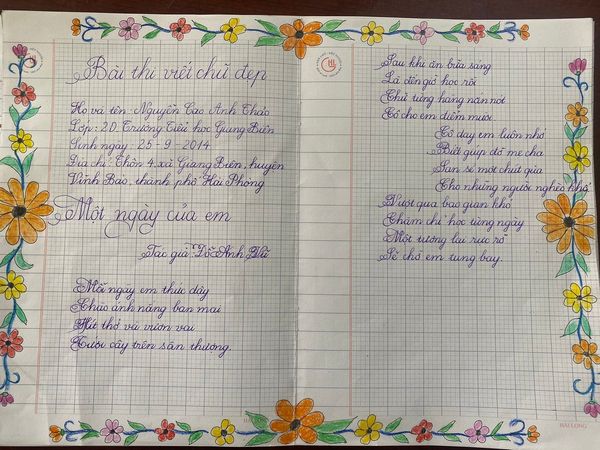 Bài thi viết chữ đẹp
Họ và tên: Nguyễn Cao Anh Thảo
Lớp: 2D Trường Tiểu học Giang Biên
Sinh ngày: 25 - 9 - 2014
Địa chỉ: Thôn 4, xã Giang Biên, huyện
Vĩnh Bảo, thành phố Hải Phòng
Một ngày của em
Tác giả: Đỗ Anh Vũ
Mỗi ngày em thức dậy
Chào ánh nắng ban mai
Hít thở và vươn vai
Tưới cây trên sân thượng.
Sau khi ăn bữa sáng
Là đến giờ học rồi
Chữ từng hàng nắn nót
Cô cho em điểm mười.
Cô dạy em luôn nhớ
Biết giúp đỡ mẹ cha
San sẻ một chút quà
Cho những người nghèo khổ
Vượt qua bao gian khó
Chăm chỉ học từng ngày
Một tương lai rực rỡ
Sẽ chờ em tung bay.
HẢI LONG